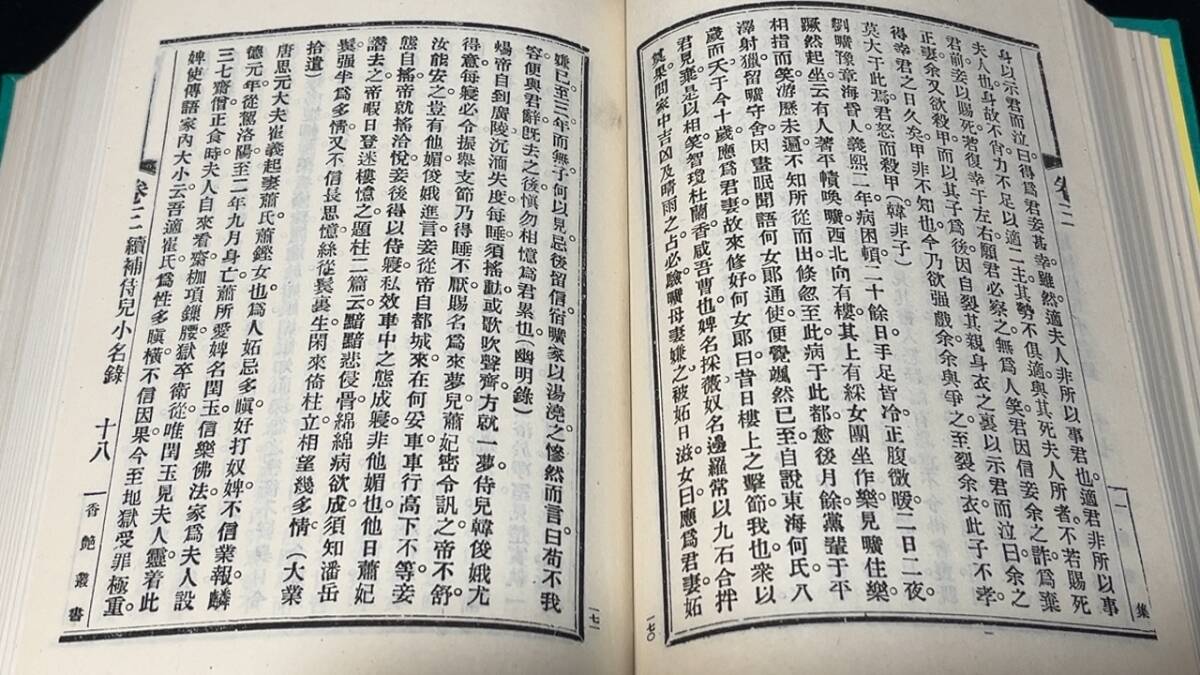 集
二
卷三
身以示君而泣曰得爲君妾甚幸雖然適夫人非所以事君也適君非所以事
夫人也身故不肖力不足以適二主其勢不俱適與其死夫人所者不若賜死
君前妾以賜死若復幸于左右願君必察之無爲人笑君因信妾余之詐爲棄
正妻余又欲殺甲而以其子爲後因自裂其親身衣之裏以示君而泣曰余之
得幸君之日久矣甲非不知也今乃欲强戲余余與爭之至裂余衣此子不孝
莫大于此爲君怒而殺甲(韓非子)
劉曠豫章海昏人義熙二年病困頓二十餘日手足皆冷正腹微暖二日二夜
蹶然起坐云有人著平幘喚曠西北向有樓其上有綵女團坐作樂見曠住樂
相指而笑游歷未遍不知所從而出倏忽至此病于此都愈後月餘黨輩于平
澤射獵留曠守舍因晝眠聞語何女郞通使便覺颯然已至自說東海何氏八
歲而夭于今十歲應爲君妻故來修好何女郞曰昔日樓上之擊節我也衆以
君見棄是以相笑智瓊杜蘭香咸吾曹也婢名採薇奴名邊羅常以九石合拌
萁果問家中吉凶及晴雨之占必驗曠母妻嫌之被妬日滋女曰應爲君妻妬
一七〇
嫌已至三年而無子何以見忌後留信宿曠家以湯澆之慘然而言曰苟不我
容便與君辭旣去之後愼勿相憶爲君累也(幽明錄)
煬帝自到廣陵沉湎失度每睡須搖動或歌吹聲齊方就一夢侍兒韓俊娥尤
得意每寢必令振舉支節乃得睡不厭賜名爲來夢兒蕭妃密令訊之帝不舒
汝能安之豈有他媚俊娥進言妾從帝自都城來在何妥車車行高下不等妾
態自搖帝就搖洽悅妾後得以侍寢私效車中之態成寢非他媚也他日蕭妃
譖去之帝暇日登迷樓憶之題柱二篇云黯黯悲侵骨綿綿病欲成須知潘岳
鬢强半爲多情又不信長思憶絲從鬢裏生閑來倚柱立相望幾多情(大業
拾遺)
唐思元大夫崔義起妻蕭氏蕭鏗女也爲人妬忌多瞋好打奴婢不信業報麟
德元年從駕洛陽至二年九月身亡蕭所愛婢名閏玉信樂佛法家爲夫人設
三七齋僧正食時夫人自來看齋枷項鏁腰獄卒衛從唯閏玉見夫人靈着此
婢使傳語家內大小云吾適崔氏爲性多瞋橫不信因果今至地獄受罪極重
卷三 續補侍兒小名錄 十八 香艶叢書
一七一